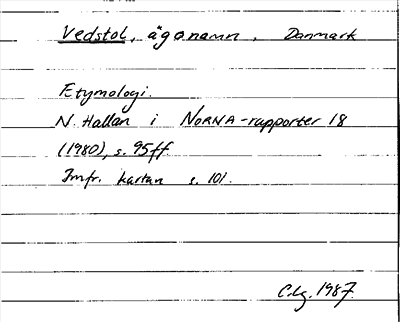 Vedstol, ägonamn, Danmark
Etymologi.
N. Hallan i NORNA-rapporter 18
(1980), s. 95ff.
Jmfr. kartan s. 101.
C.lg. 1987.